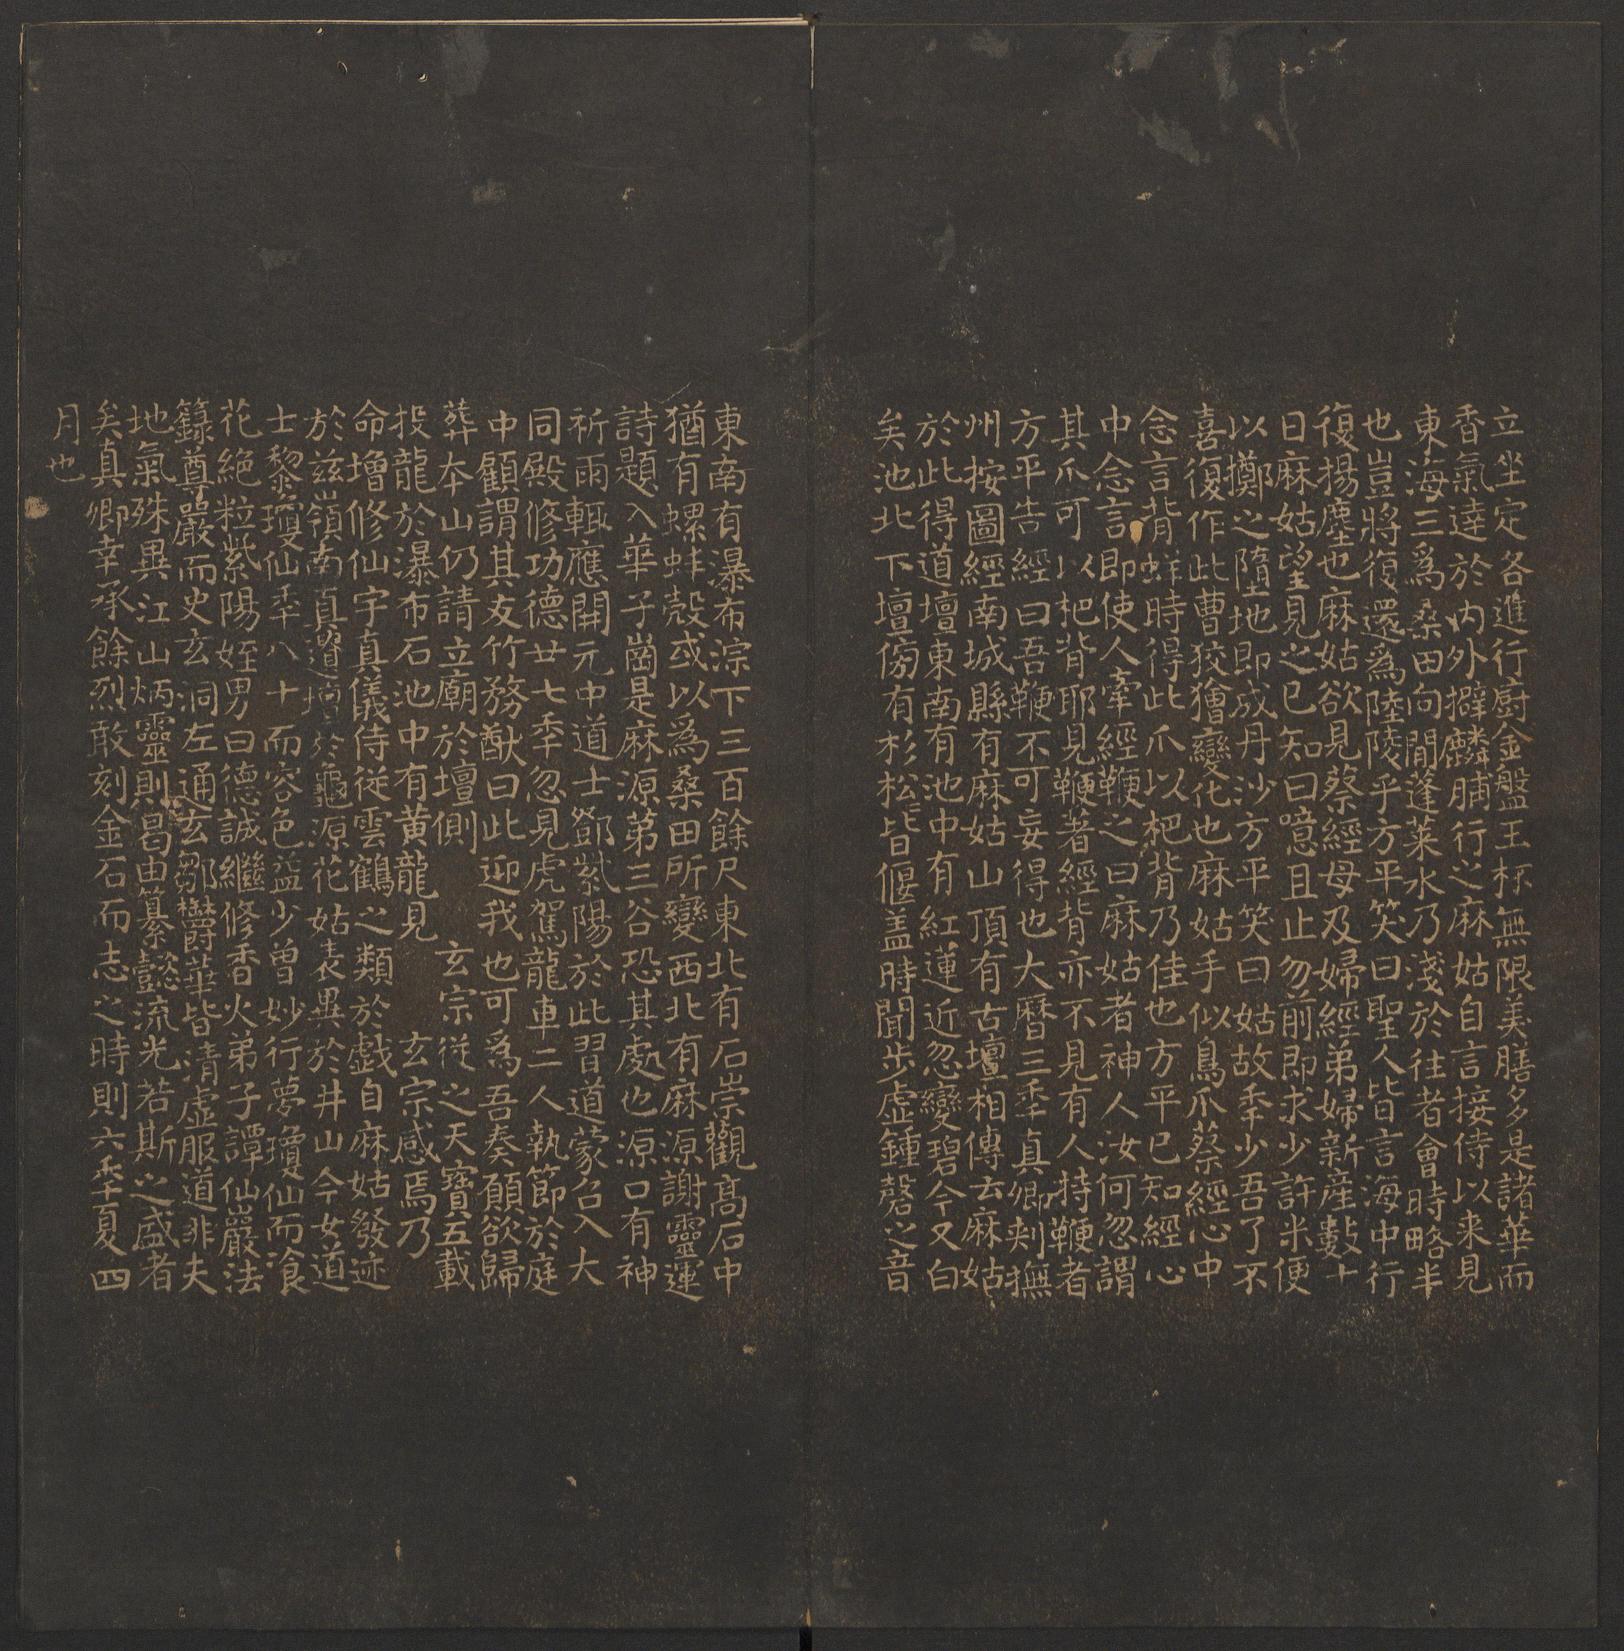 立坐定各進行廚金盤玉杯無限美膳多是諸華而
香氣達於内外擗麟脯行之麻姑自言接侍以来見
東海三為桑田向間蓬萊水乃淺於往者會時略半
也豈將復還為陸陵乎方平笑曰聖人皆言海中行
復揚塵也麻姑欲見蔡經母及婦經弟婦新産數十
日麻姑望見之已知曰噫且止勿前即求少許米便
以擲之墮地即成丹沙方平笑曰姑故秊少吾了不
喜復作此曹狡獪變化也麻姑手似鳥爪蔡經心中
念言背蛘時得此爪以杷背乃佳也方平已知經心
中念言即使人牽經鞭之曰麻姑者神人汝何忽謂
其爪可以杷背耶見鞭著經背亦不見有人持鞭者
方平告經曰吾鞭不可妄得也大曆三秊真卿刺撫
州按圖經南城縣有麻姑山頂有古壇相傳云麻姑
於此得道壇東南有池中有紅蓮近忽變碧今又白
矣池北下壇傍有杉松皆偃盖時聞步虛鍾磬之音
東南有瀑布淙下三百餘尺東北有石崇觀高石中
猶有螺蚌殼或以為桑田所變西北有麻源謝靈運
詩題入華子崗是麻源第三谷恐其處也源口有神
祈雨輒應開元中道士鄧紫陽於此習道蒙召入大
同殿修功德廿七秊忽見虎駕龍車二人執節於庭
中顧謂其友竹務猷曰此迎我也可為吾奏願欲歸
葬夲山仍請立廟於壇側 玄宗從之天寶五載
投龍於瀑布石池中有黄龍見 玄宗感焉乃
命增修仙宇真儀侍從雲鶴之類於戲自麻姑發迹
於兹嶺南真遺壇於龜源花姑表異於井山今女道
士黎瓊仙秊八十而容色益少曾妙行夢瓊仙而飡
花絶粒紫陽姪男曰德誠繼修香火弟子譚仙巖法
籙尊嚴而史玄洞左通玄鄒欝華皆清虛服道非夫
地氣殊異江山炳靈則曷由纂懿流光若斯之盛者
矣真卿幸承餘烈敢刻金石而志之時則六秊夏四
月也